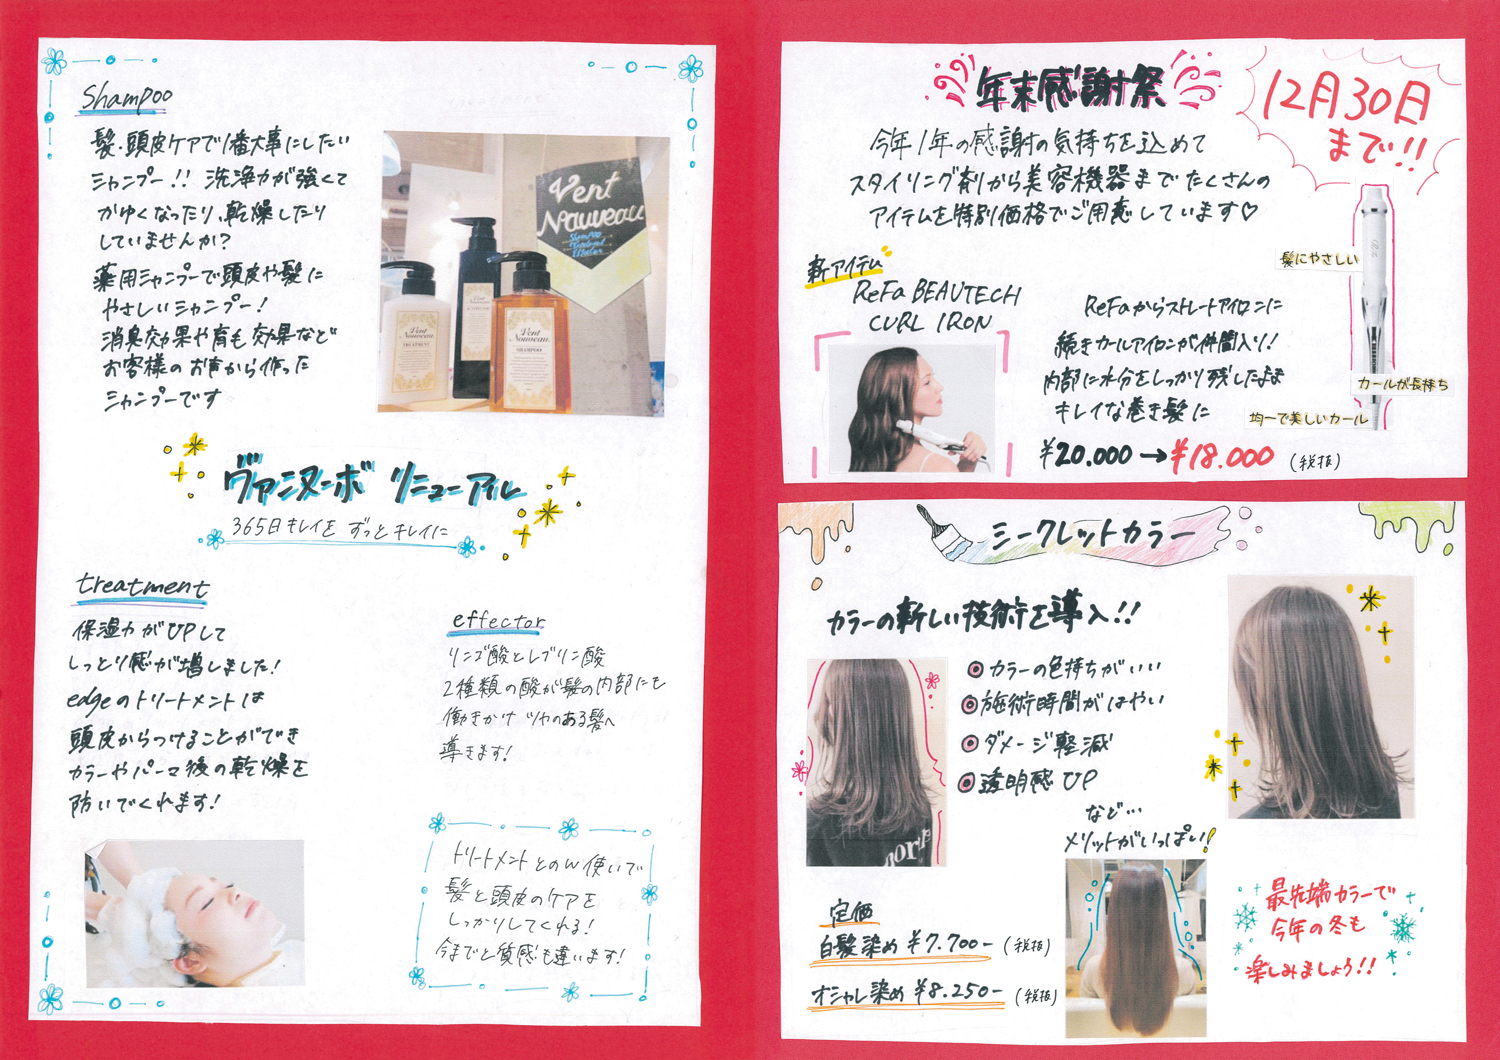 Shampoo
髪・頭皮ケアで1番大事にしたい
シャンプー!! 洗浄力が強くて
かゆくなったり、乾燥したり
していませんか?
薬用シャンプーで頭皮や髪に
やさしいシャンプー!
消臭効果や育毛効果など
お客様のお声から作った
シャンプーです
Vent
Nouveau
Vent
Nouveau
TREATMENT
Vent
Nouveau
SHAMPOO
ヴァンヌーボ リニューアル
365日キレイを ずっとキレイに
treatment
保湿力がUPして
しっとり感が増しました!
edgeのトリートメントは
頭皮からつけることができ
カラーやパーマ後の乾燥を
防いでくれます!
effector
リンゴ酸とレブリン酸
2種類の酸が髪の内部にも
働きかけ ツヤのある髪へ
導きます!
トリートメントとのW使いで
髪と頭皮のケアを
しっかりしてくれる!
今までと質感も違います!
年末感謝祭
12月30日
まで!!
今年1年の感謝の気持ちを込めて
スタイリング剤から美容機器までたくさんの
アイテムを特別価格でご用意しています♡
新アイテム
ReFa BEAUTECH
CURL IRON
ReFaからストレートアイロンに
続きカールアイロンが仲間入り!
内部に水分をしっかり残したまま
キレイな巻き髪に
¥20.000→¥18.000 (税抜)
髪にやさしい
カールが長持ち
均一で美しいカール
シークレットカラー
カラーの新しい技術を導入!!
◎カラーの色持ちがいい
◎施術時間がはやい
◎ダメージ軽減
◎透明感UP
など…
メリットがいっぱい!
定価
白髪染め ¥7.700- (税抜)
オシャレ染め ¥8.250- (税抜)
最先端カラーで
今年の冬も
楽しみましょう!!